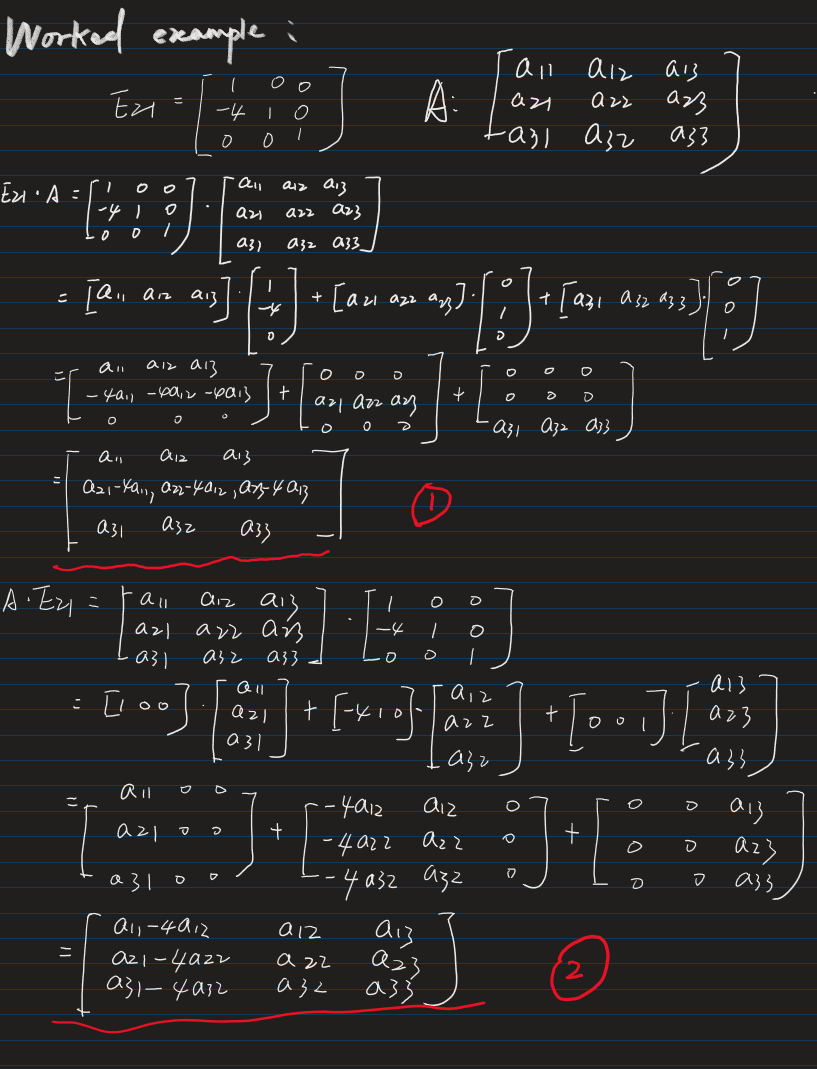 Worked example :
E21 = [ 1 0 0
-4 1 0
0 0 1 ]
A: [ a11 a12 a13
a21 a22 a23
a31 a32 a33 ]
E21 · A = [ 1 0 0
-4 1 0
0 0 1 ] · [ a11 a12 a13
a21 a22 a23
a31 a32 a33 ]
= [a11 a12 a13] · [ 1
-4
0 ] + [a21 a22 a23] · [ 0
1
0 ] + [a31 a32 a33] · [ 0
0
1 ]
= [ a11 a12 a13
-4a11 -4a12 -4a13
0 0 0 ] + [ 0 0 0
a21 a22 a23
0 0 0 ] + [ 0 0 0
0 0 0
a31 a32 a33 ]
= [ a11 a12 a13
a21-4a11, a22-4a12, a23-4a13
a31 a32 a33 ]
1
A · E21 = [ a11 a12 a13
a21 a22 a23
a31 a32 a33 ] · [ 1 0 0
-4 1 0
0 0 1 ]
= [1 0 0] · [ a11
a21
a31 ] + [-4 1 0] · [ a12
a22
a32 ] + [0 0 1] · [ a13
a23
a33 ]
= [ a11 0 0
a21 0 0
a31 0 0 ] + [ -4a12 a12 0
-4a22 a22 0
-4a32 a32 0 ] + [ 0 0 a13
0 0 a23
0 0 a33 ]
= [ a11-4a12 a12 a13
a21-4a22 a22 a23
a31-4a32 a32 a33 ]
2